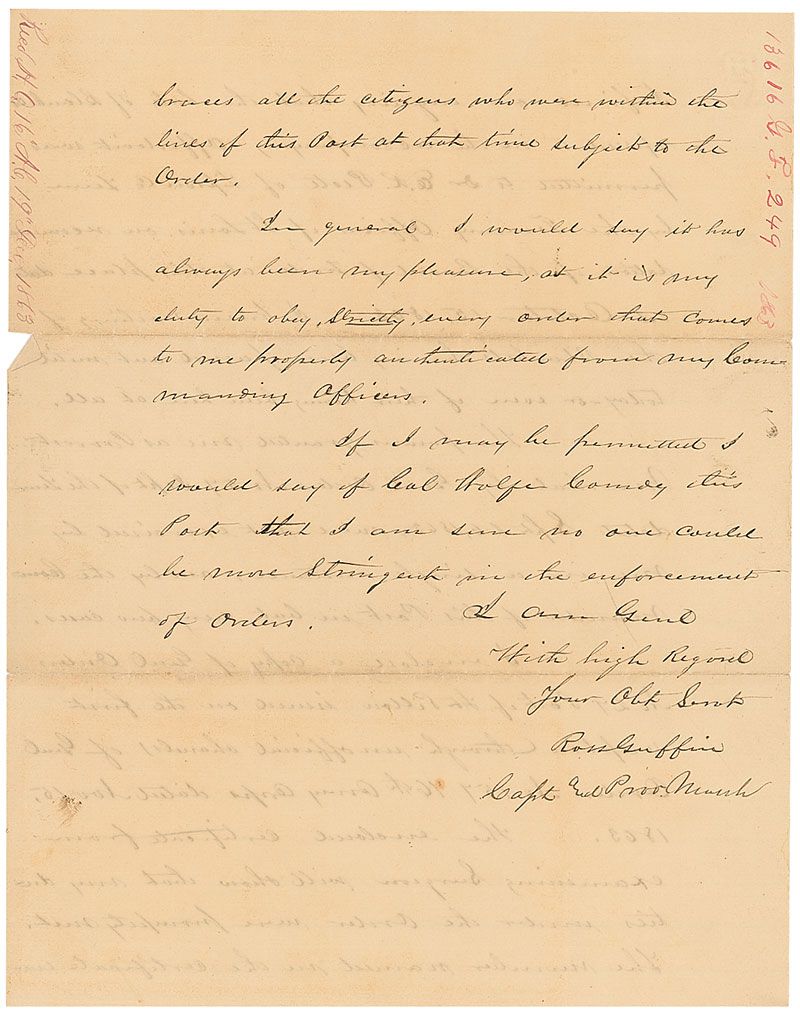 braces all the citizens who were within the
lines of this Post at that time subject to the
Order.
In general I would say it has
always been my pleasure, as it is my
duty to obey, strictly, every order that comes
to me properly authenticated from my Com-
manding Officers.
If I may be permitted I
would say of Col Wolfe Comdg this
Post that I am sure no one could
be more Stringent in the enforcement
of Orders.
I am Genl
With high Regard
Your Obt Servt
Ross Guffin
Capt and Prov Marsh
Recd H. Q. 16 A. C. 19" Dec, 1863
249
1863